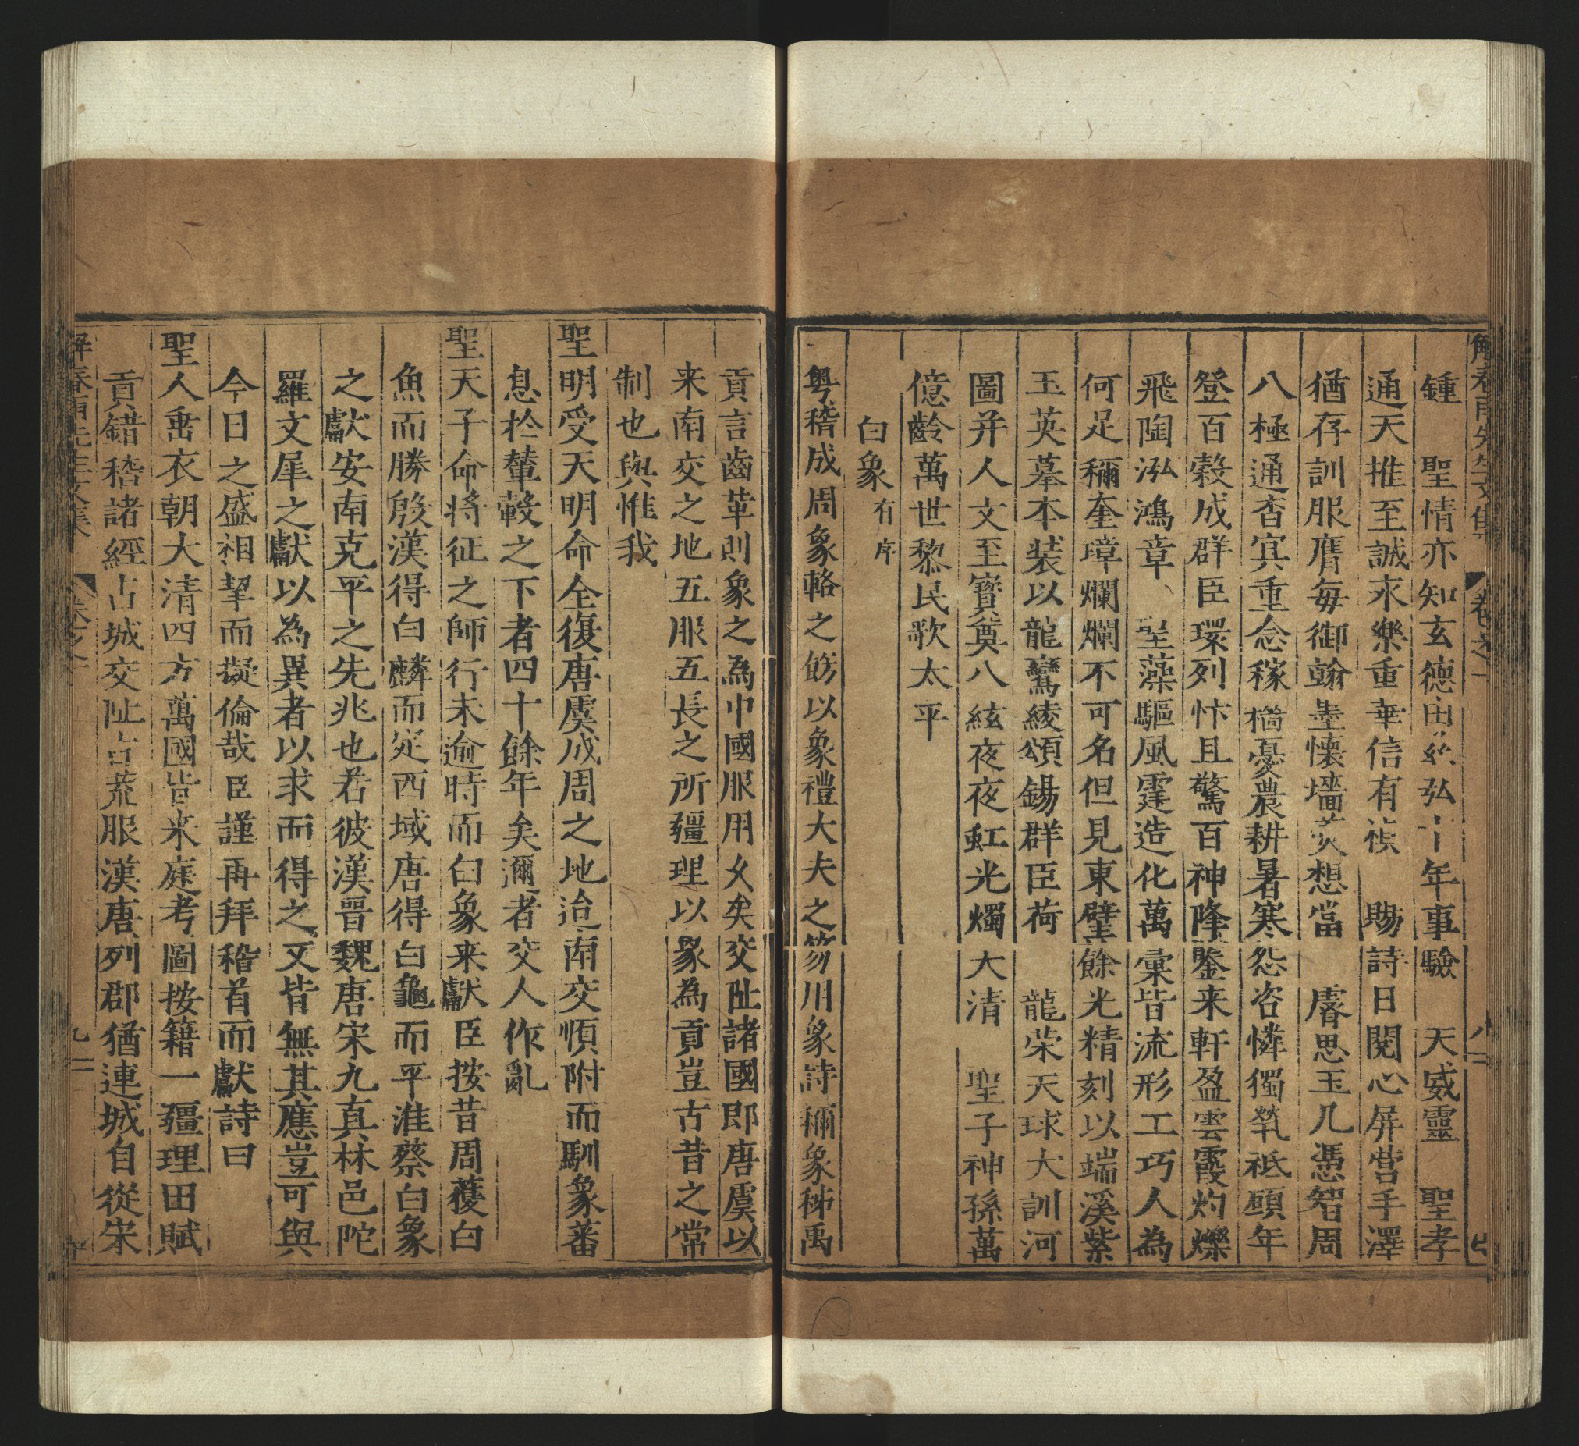 解春雨先生文集 卷之一
鍾 聖情亦知玄德 年事驗 天威靈 聖孝
通天推至誠永樂重華信有 賜詩日閱心屏營手澤
猶存訓服膺每御翰墨懷墻 想當 睿思玉几憑智周
八極通杳冥重念稼穡憂農耕暑寒怨咨憐獨煢祗頤年
登百穀成群臣環列忭且驚百神降鑒來軒盈雲霞灼爍
飛陶泓鴻章 聖藻驅風霆造化萬彙皆流形工巧人為
何足稱奎璋爛爛不可名但見東壁餘光精刻以端溪紫
玉英摹本裝以龍鸞綾頌錫群臣臣荷 龍荣天球大訓河
圖并人文至寶奠八紘夜夜虹光燭大清 聖子神孫萬
億齡萬世黎民歌太平
白象有序
粵稽成周象輅之飾以象禮大夫之笏用象詩稱象稊禹
貢言齒革則象之為中國服用久矣交阯諸國即唐虞以
来南交之地五服五長之所疆理以象為貢豈古昔之常
制也與惟我
聖明受天明命全復唐虞成周之地迨南交順附而馴象蕃
息於輦轂之下者四十餘年矣邇者交人作亂
聖天子命將征之師行未逾時而白象来獻臣按昔周獲白
魚而勝殷漢得白麟而定西域唐得白龜而平淮蔡白象
之獻安南克平之先兆也若彼漢晋魏唐宋九真林邑陀
羅文犀之獻以為異者以求而得之又皆無其應豈可與
今日之盛相挈而擬倫哉臣謹再拜稽首而獻詩曰
聖人端衣朝大清四方萬國皆来庭考圖按籍一疆理田賦
貢錯稽諸經古城交阯古荒服漢唐列郡猶連城自從宋